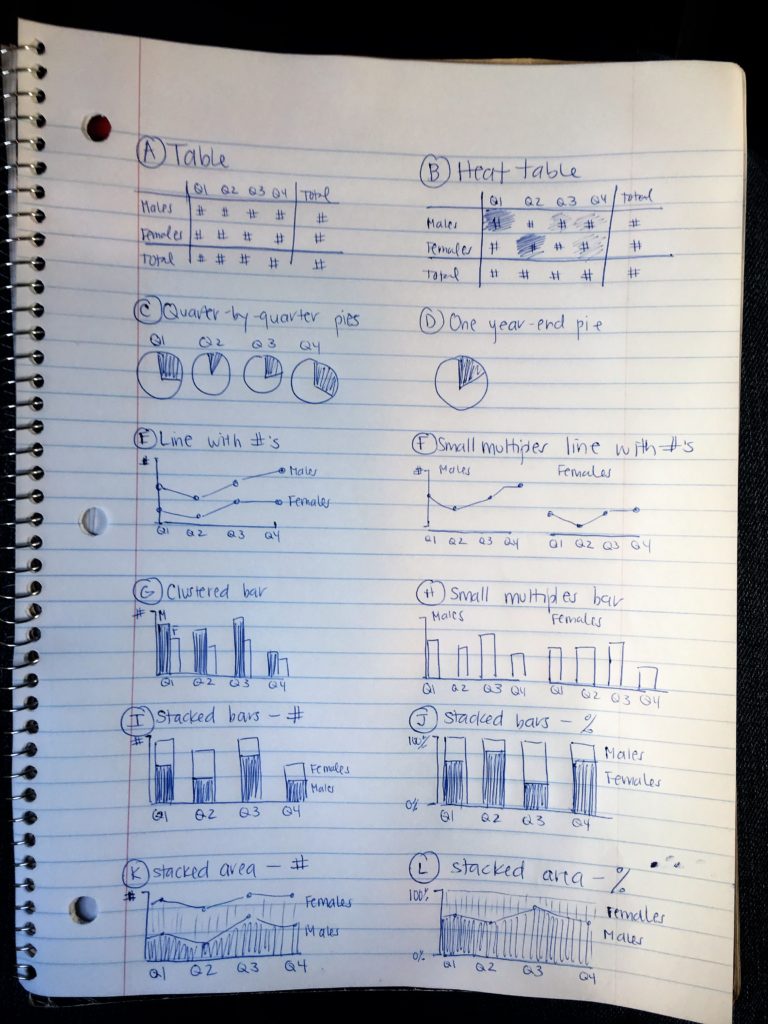 A Table
Q1 Q2 Q3 Q4 Total
Males # # # # #
Females # # # # #
Total # # # # #
B Heat table
Q1 Q2 Q3 Q4 Total
Males # # # # #
Females # # # # #
Total # # # # #
C Quarter-by-quarter pies
Q1 Q2 Q3 Q4
D One year-end pie
E Line with #'s
#
Males
Females
Q1 Q2 Q3 Q4
F Small multiples line with #'s
# Males Females
Q1 Q2 Q3 Q4 Q1 Q2 Q3 Q4
G Clustered bar
# M
F
Q1 Q2 Q3 Q4
H Small multiples bar
Males Females
Q1 Q2 Q3 Q4 Q1 Q2 Q3 Q4
I Stacked bars - #
#
Females
Males
Q1 Q2 Q3 Q4
J Stacked bars - %
100%
Males
Females
0%
Q1 Q2 Q3 Q4
K Stacked area - #
#
Females
Males
Q1 Q2 Q3 Q4
L stacked area - %
100%
Females
Males
0%
Q1 Q2 Q3 Q4